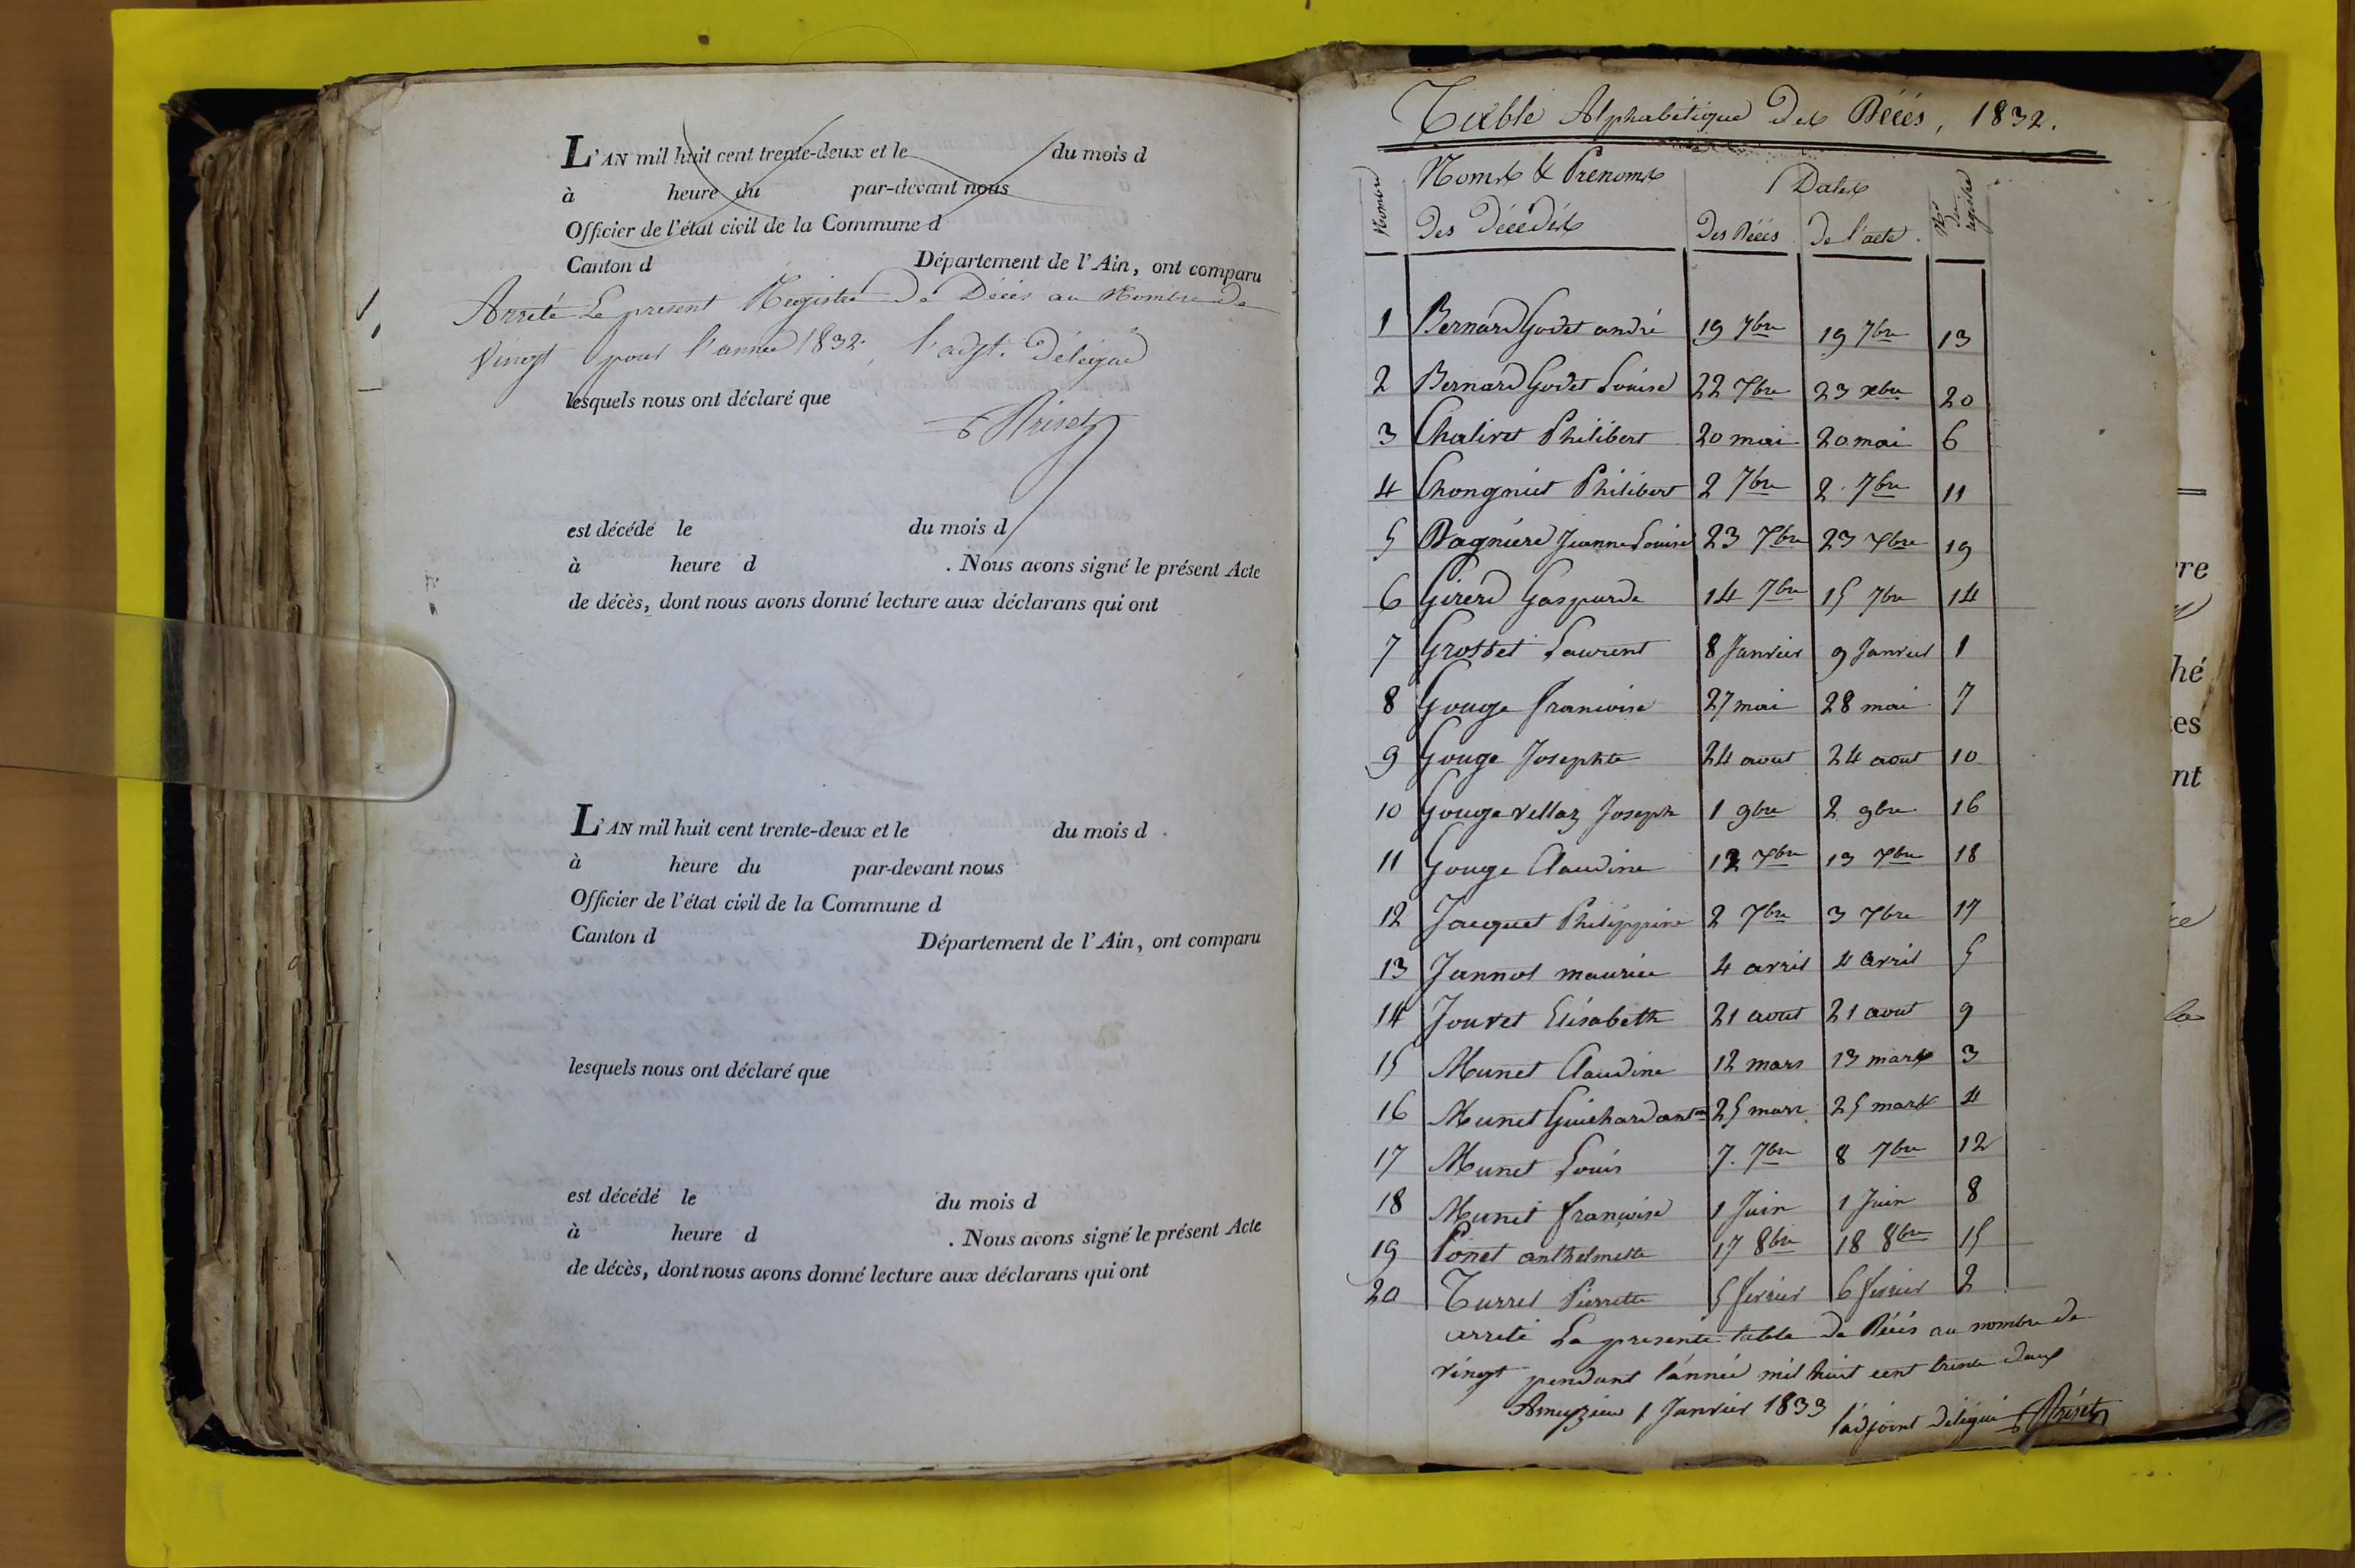 L'AN mil huit cent trente-deux et le du mois d
à heure du par-devant nous
Officier de l'état civil de la Commune d
Canton d Département de l'Ain, ont comparu
Arreté Le present Registre de Décès au Nombre de
Vingt pour l'année 1832. l'adjt. Délégué
lesquels nous ont déclaré que
est décédé le du mois d
à heure d . Nous avons signé le présent Acte
de décès, dont nous avons donné lecture aux déclarans qui ont
L'AN mil huit cent trente-deux et le du mois d
à heure du par-devant nous
Officier de l'état civil de la Commune d
Canton d Département de l'Ain, ont comparu
lesquels nous ont déclaré que
est décédé le du mois d
à heure d . Nous avons signé le présent Acte
de décès, dont nous avons donné lecture aux déclarans qui ont
Table Alphabétique Des Décés, 1832.
Nombre Noms & Prenoms Dates Nos du registre
Des Décédés Des Décés De l'acte
1 Bernard Godet andré 19 7bre 19 7bre 13
2 Bernard Godet Louise 22 xbre 23 xbre 20
3 Chalivet Philibert 20 mai 20 mai 6
4 Chongniet Philibert 2 7bre 2 7bre 11
5 Dagniere Jeanne Louise 23 xbre 23 xbre 19
6 Girerd Gasparde 14 7bre 15 7bre 14
7 Grosset Laurent 8 Janvier 9 Janvier 1
8 Gouge francoise 27 mai 28 mai 7
9 Gouge Josephte 24 aout 24 aout 10
10 Gouge vellaz Joseph 1 9bre 2 9bre 16
11 Gouge Claudine 12 xbre 13 xbre 18
12 Jacquet Philippine 2 xbre 3 xbre 17
13 Jannot maurice 4 avril 4 avril 5
14 Jouvet Elisabeth 21 aout 21 aout 9
15 Munet Claudine 12 mars 13 mars 3
16 Munet Guichard antne 25 mars 25 mars 4
17 Munet Louis 7 7bre 8 7bre 12
18 Munet francoise 1 Juin 1 Juin 8
19 Ponet anthelmette 17 8bre 18 8bre 15
20 Turrel Pierrette 5 fevrier 6 fevrier 2
arreté La presente table de Décés au nombre de
vingt pendant l'année mil huit cent trente deux
Ameyzieu 1 Janvier 1833 l'adjoint délégué
re
hé
es
nt
la